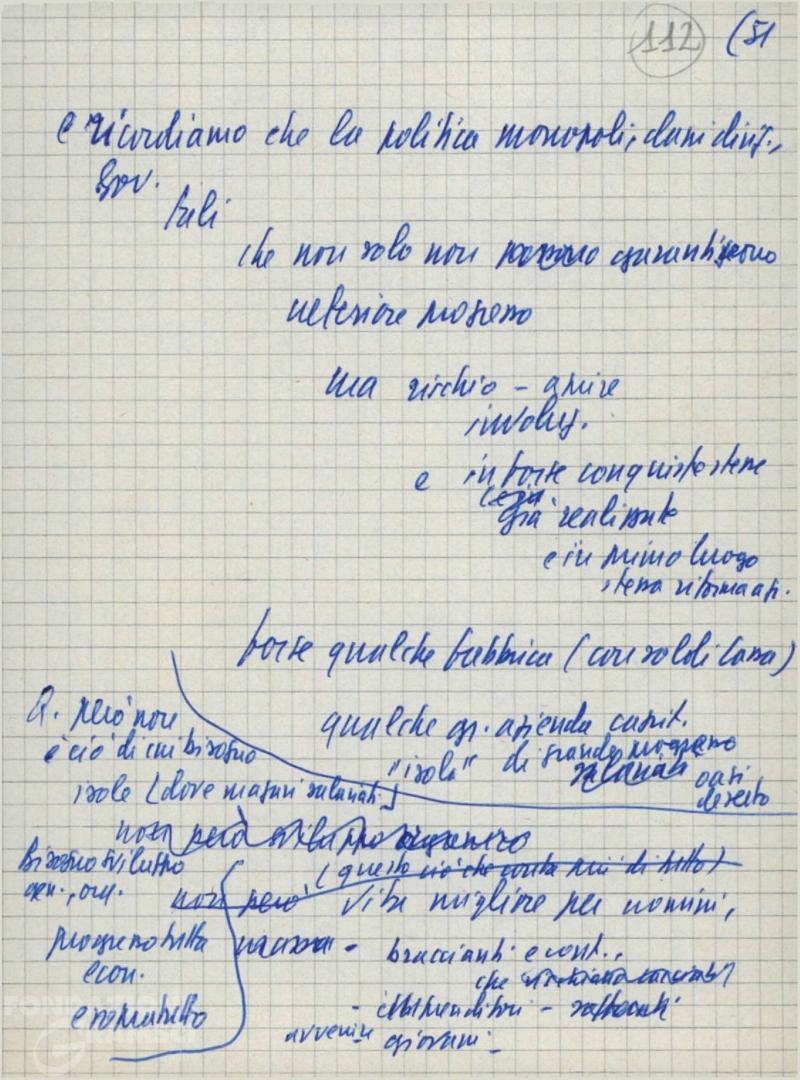 112 (51
e ricordiamo che la politica monopoli, classi dirig.,
gov.
tali
che non solo non possono garantiscono
ulteriore progresso
ma rischio - aprire
involuz.
e in forse conquiste stesse
già realizzate
e in primo luogo
stessa riforma ag.
forse qualche fabbrica (con soldi Cassa)
qualche gr. azienda capit.
"isola" di grande progresso
oasi
deserto
Q. però non
è ciò di cui bisogno
isole (dove magari salariati)
non però sviluppo organico
(questo ciò che conta più di tutto)
Bisogno sviluppo
gen., org.
non però vita migliore per uomini,
progresso tutta
econ.
e soprattutto
massa - braccianti e cont.,
che
- giovani -
avvenire